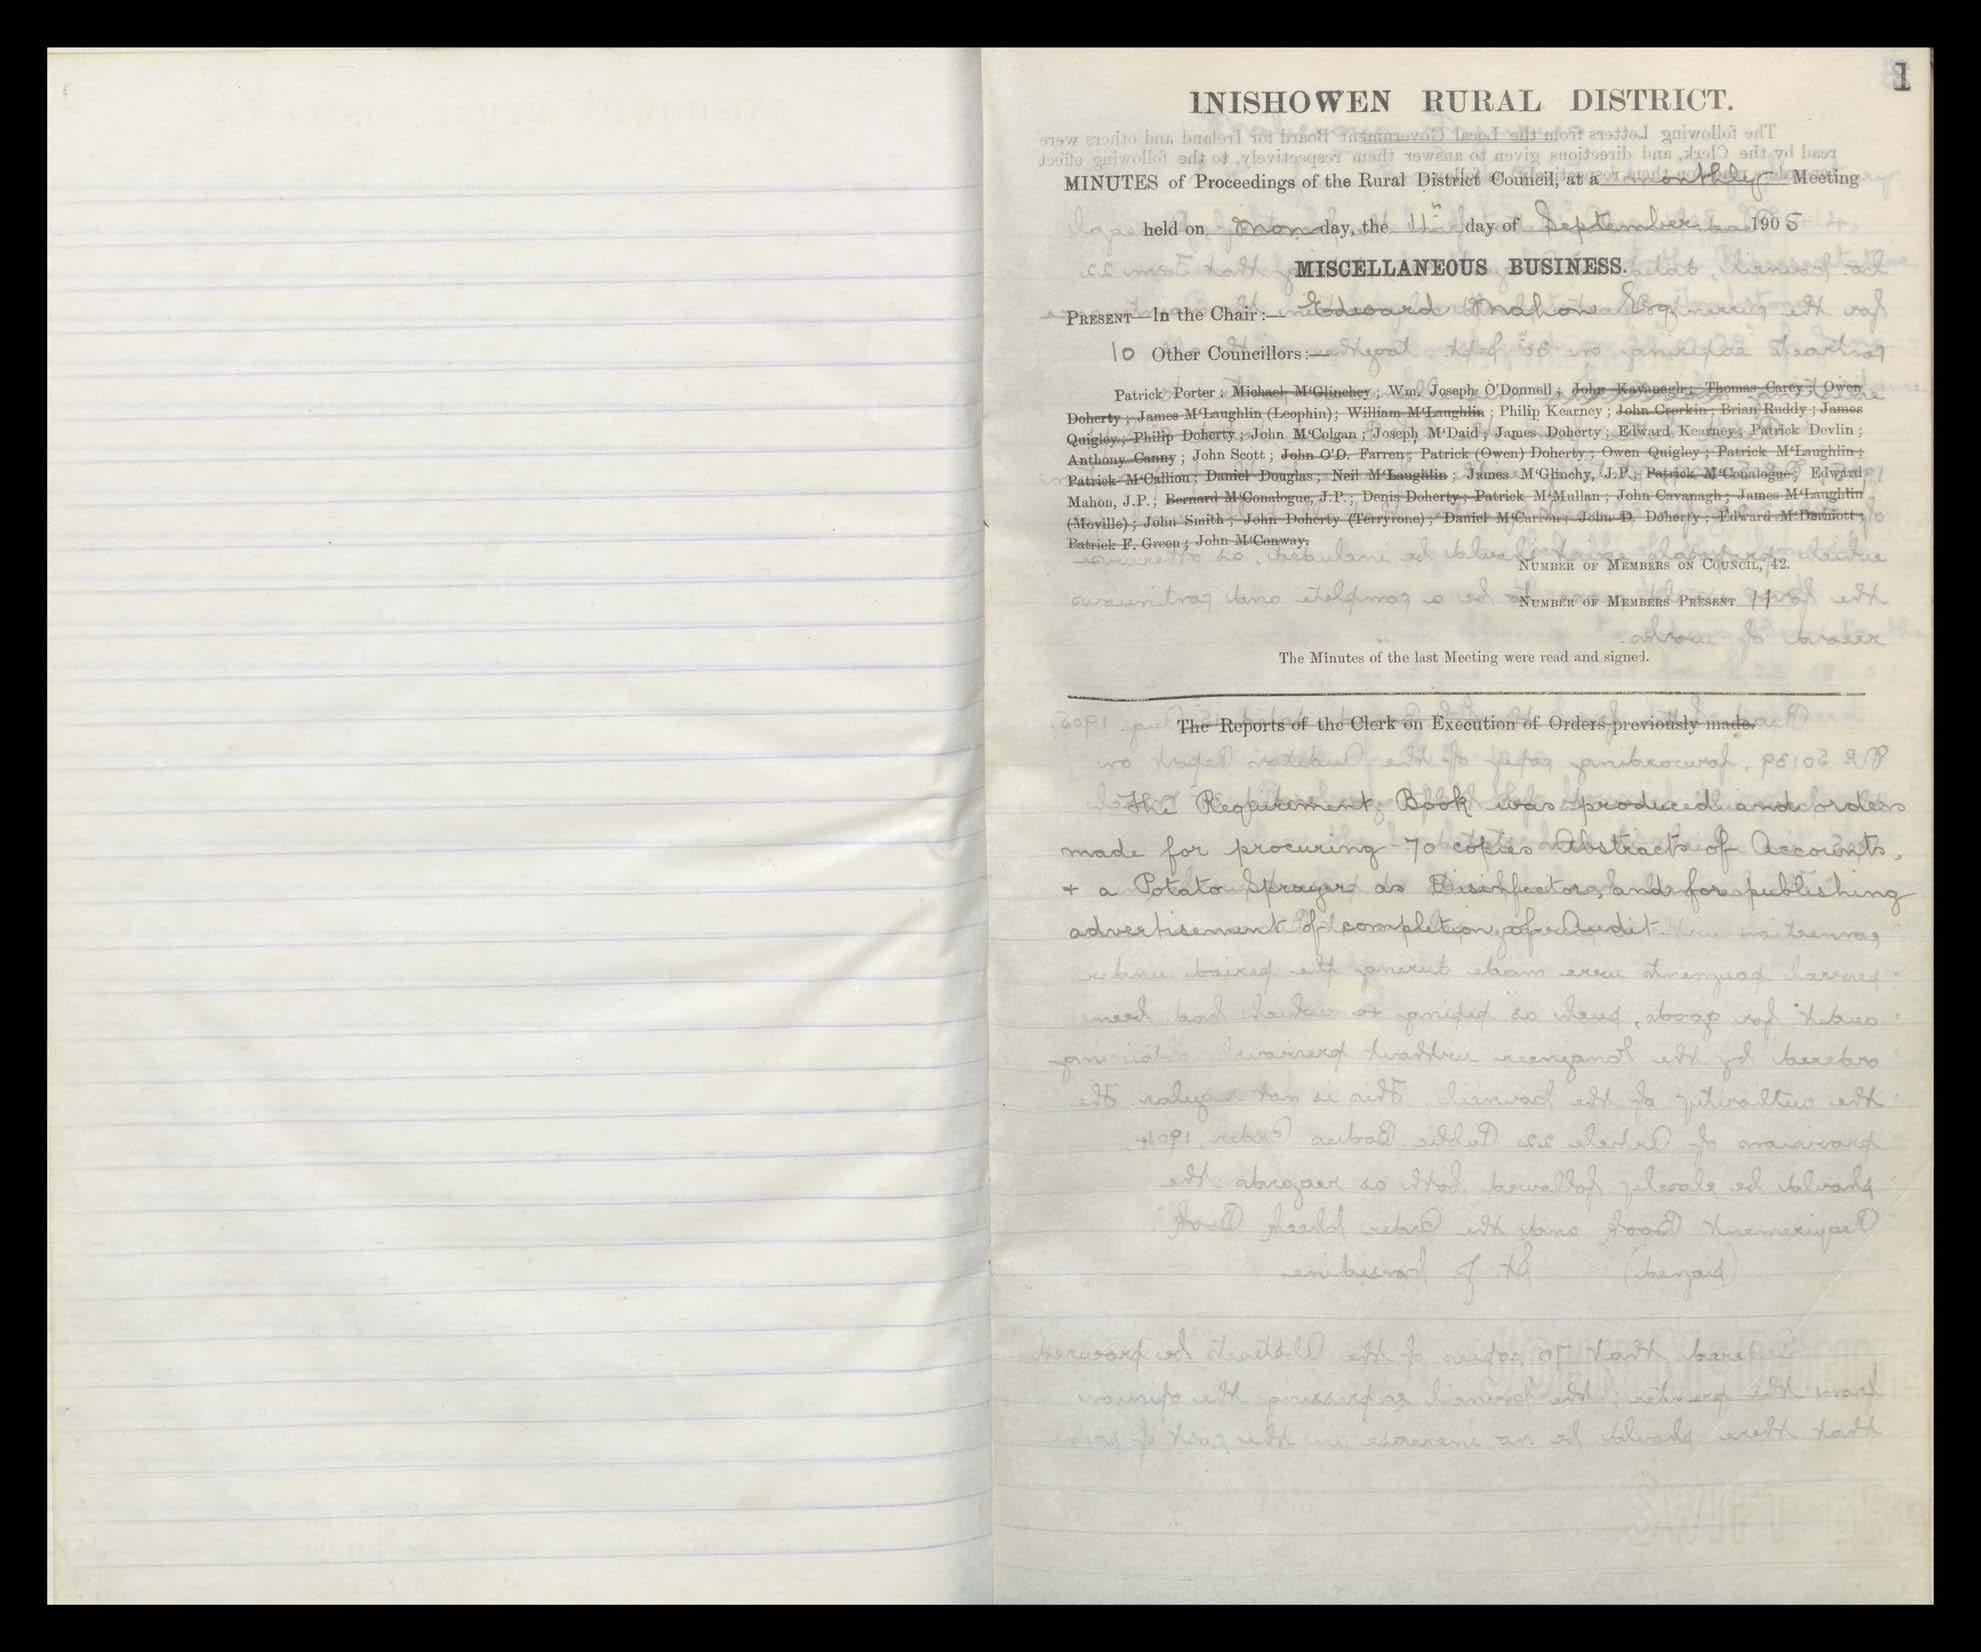 1
INISHOWEN RURAL DISTRICT.
MINUTES of Proceedings of the Rural District Council, at a monthly Meeting
held on Monday, the 11th day of September 1905
MISCELLANEOUS BUSINESS.
PRESENT—In the Chair:— Edward Mahon Esq
10 Other Councillors:—
Patrick Porter; Michael M‘Glinchey; Wm. Joseph O'Donnell; John Kavanagh; Thomas Carey; Owen
Doherty; James M‘Laughlin (Leophin); William M‘Laughlin; Philip Kearney; John Crerkin; Brian Ruddy; James
Quigley; Philip Doherty; John M‘Colgan; Joseph M‘Daid; James Doherty; Edward Kearney; Patrick Devlin;
Anthony Canny; John Scott; John O'D. Farren; Patrick (Owen) Doherty; Owen Quigley; Patrick M‘Laughlin;
Patrick M‘Callion; Daniel Douglas; Neil M‘Laughlin; James M‘Glinchy, J.P.; Patrick M‘Conalogue; Edward
Mahon, J.P.; Bernard M‘Conalogue, J.P.; Denis Doherty; Patrick M‘Mullan; John Cavanagh; James M‘Laughlin
(Moville); John Smith; John Doherty (Terryrone); Daniel M‘Carron; John D. Doherty; Edward M‘Dermott;
Patrick F. Green; John M‘Conway.
NUMBER OF MEMBERS ON COUNCIL, 42.
NUMBER OF MEMBERS PRESENT 11
The Minutes of the last Meeting were read and signed.
The Reports of the Clerk on Execution of Orders previously made.
The Requirement Book was produced and orders
made for procuring 70 copies Abstracts of Accounts,
+ a Potato Sprayer as Disinfector, and for publishing
advertisement of completion of Audit.